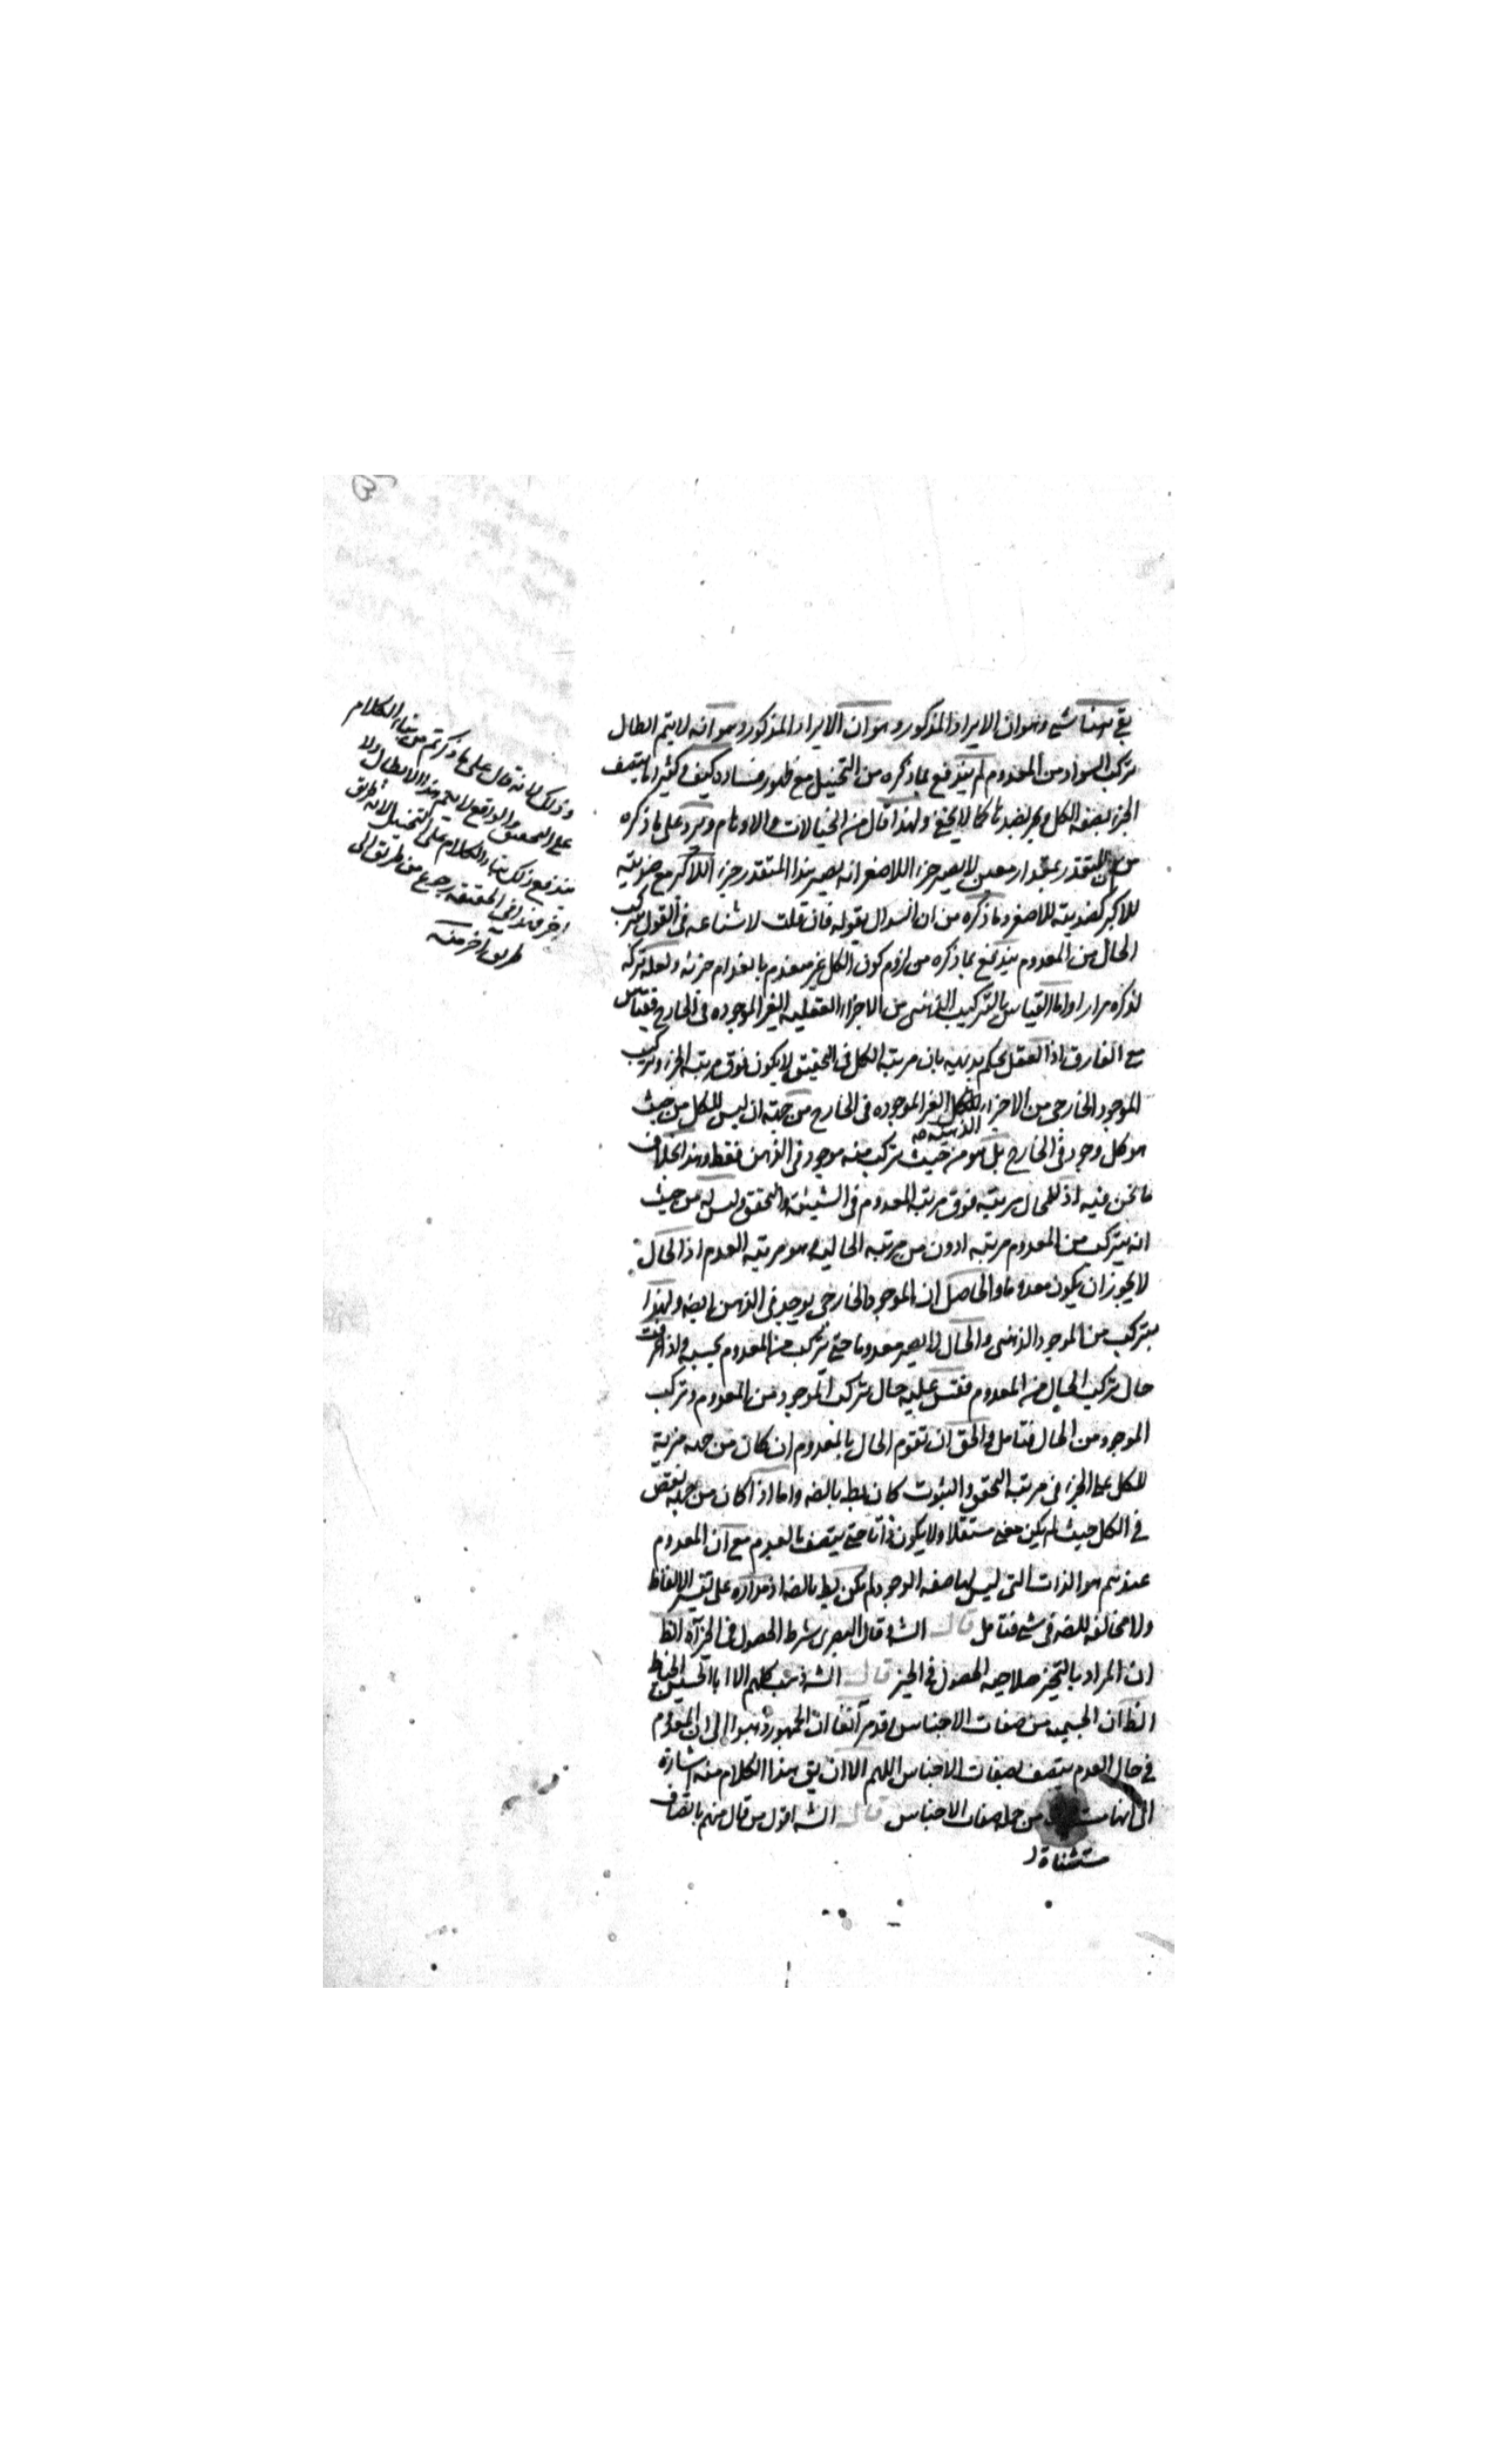 بقى ههنا شئ وهو ان الايراد المذكور وهو ان الايراد المذكور وهو انه لا يتم ابطال
تركب السواد من المعدوم لم يندفع بما ذكره من التخييل مع ظهور فساده كيف وكثيرا ما يتصف
الجزء بصفة الكل وبضدها كما لا يخفى ولهذا قال من الخيالات والاوهام ويرد على ما ذكره
من ان المتقدر بمقدار معين لا يصير جزءا للاصغر انه يصير هذا المتقدر جزءا للاكبر مع ضديته
للاكبر كضديته للاصغر وما ذكره من ان السوال بقوله فان قلت لا شناعة فى القول بتركب
الحال من المعدوم يندفع بما ذكره من لزوم كون الكل غير منعدم بانعدام جزئه ولعله تركه
لذكره مرارا واما القياس بالتركيب الذهنى من الاجزاء العقلية الغير الموجودة فى الخارج فقياس
مع الفارق اذ العقل يحكم بديهة بان مرتبة الكل فى التحقيق لا يكون فوق مرتبة الجزء وتركيب
الموجود الخارجى من الاجزاء الغير الموجودة فى الخارج من جهة ان ليس للكل من حيث
الذهنية صح
هو كل وجود فى الخارج بل هو من حيث تركب منه موجود فى الذهن فقط وهذا بخلاف
ما نحن فيه اذ للحال مرتبة فوق مرتبة المعدوم فى الشيئية والتحقق وليس له من حيث
انه يتركب من المعدوم مرتبة ادون من مرتبة الحالية وهو مرتبة العدم اذ الحال
لا يجوز ان يكون معدوما والحاصل ان الموجود الخارجى يوجد فى الذهن ايضا ولهذا
يتركب من الموجود الذهنى والحال لا يصير معدوما حتى يتركب من المعدوم بحسبه واذا عرفت
حال تركيب الحال من المعدوم فقس عليه حال تركب الموجود من المعدوم وتركب
الموجود من الحال فتامل والحق ان تقوم الحال بالمعدوم ان كان من جهة مزية
للكل على الجزء فى مرتبة التحقق والثبوت كان بط بالضه واما اذا كان من جهة نقص
فى الكل حيث لم يكن معنى مستقلا ولا يكون ذاتا حتى يتصف بالعدم مع ان المعدوم
عندهم هو الذات التى ليس لها صفة الوجود لم يكن بط بالضه اذ مداره على تفسير الالفاظ
ولا مخالفة للضه فى شئ فتامل قال الشه وقال البصرى شرط الحصول فى الحيز آه الظ
ان المراد بالتحيز صلاحية الحصول فى الحيز قال الشه ذهب كلهم الا ابا الحسين الخياط
الظ ان الجسمية من صفات الاجناس وقد مر آنفا ان الجمهور ذهبوا الى ان المعدوم
فى حال العدم يتصف بصفات الاجناس اللهم الا ان يق هذا الكلام منه اشارة
الى انها من جملة صفات الاجناس قال الشه اقول من قال منهم باتصاف
مستثناة
وذلك لانه قال على ما ذكرتم من بناء الكلام
على التحقيق والواقع لا يتم هذا الابطال ولا
يندفع ذلك بناء الكلام على التخييل لانه طريق
اخر فهذا فى الحقيقة رجوع من طريق الى
طريق اخر منه